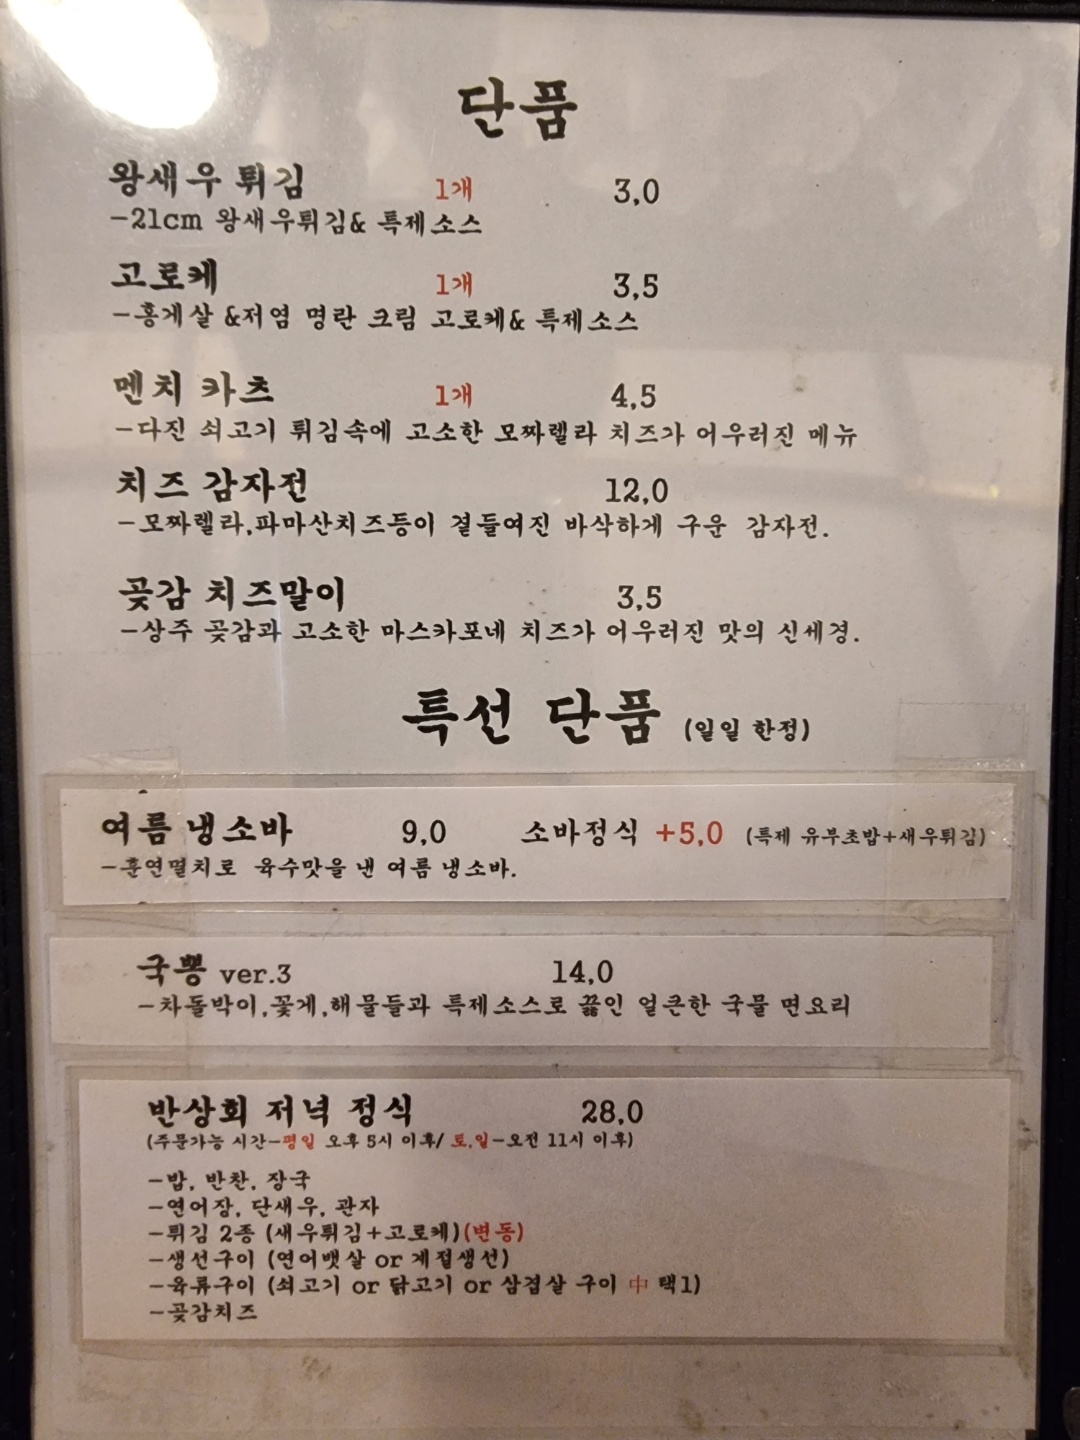 단품
왕새우 튀김 1개 3,0
-21cm 왕새우튀김& 특제소스
고로케 1개 3,5
-홍게살 &저염 명란 크림 고로케& 특제소스
멘치 카츠 1개 4,5
-다진 쇠고기 튀김속에 고소한 모짜렐라 치즈가 어우러진 메뉴
치즈 감자전 12,0
-모짜렐라,파마산치즈등이 곁들여진 바삭하게 구운 감자전.
곶감 치즈말이 3,5
-상주 곶감과 고소한 마스카포네 치즈가 어우러진 맛의 신세경.
특선 단품 (일일 한정)
여름 냉소바 9,0 소바정식 +5,0 (특제 유부초밥+새우튀김)
-훈연멸치로 육수맛을 낸 여름 냉소바.
국뽕 ver.3 14,0
-차돌박이,꽃게,해물들과 특제소스로 끓인 얼큰한 국물 면요리
반상회 저녁 정식 28,0
(주문가능 시간-평일 오후 5시 이후/ 토,일-오전 11시 이후)
-밥, 반찬, 장국
-연어장, 단새우, 관자
-튀김 2종 (새우튀김+고로케)(변동)
-생선구이 (연어뱃살 or 계절생선)
-육류구이 (쇠고기 or 닭고기 or 삼겹살 구이 中 택1)
-곶감치즈